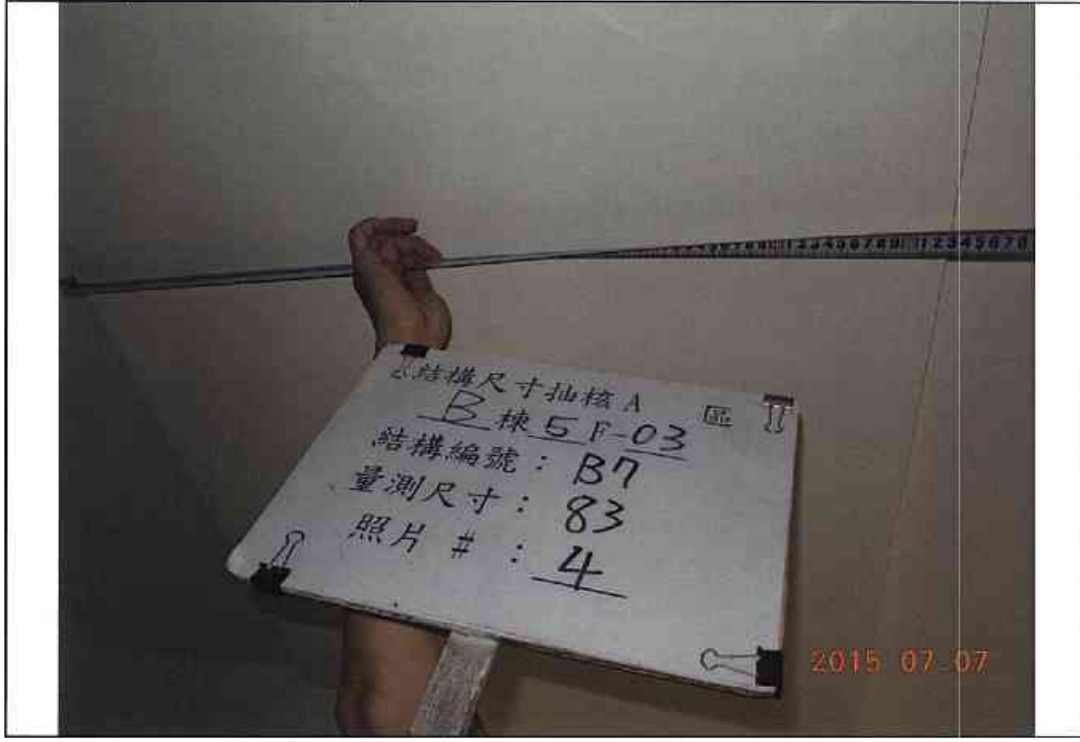 結構尺寸抽核A 區
B棟5F-03
結構編號：B7
量測尺寸：83
照片 #：4
2015 07 07